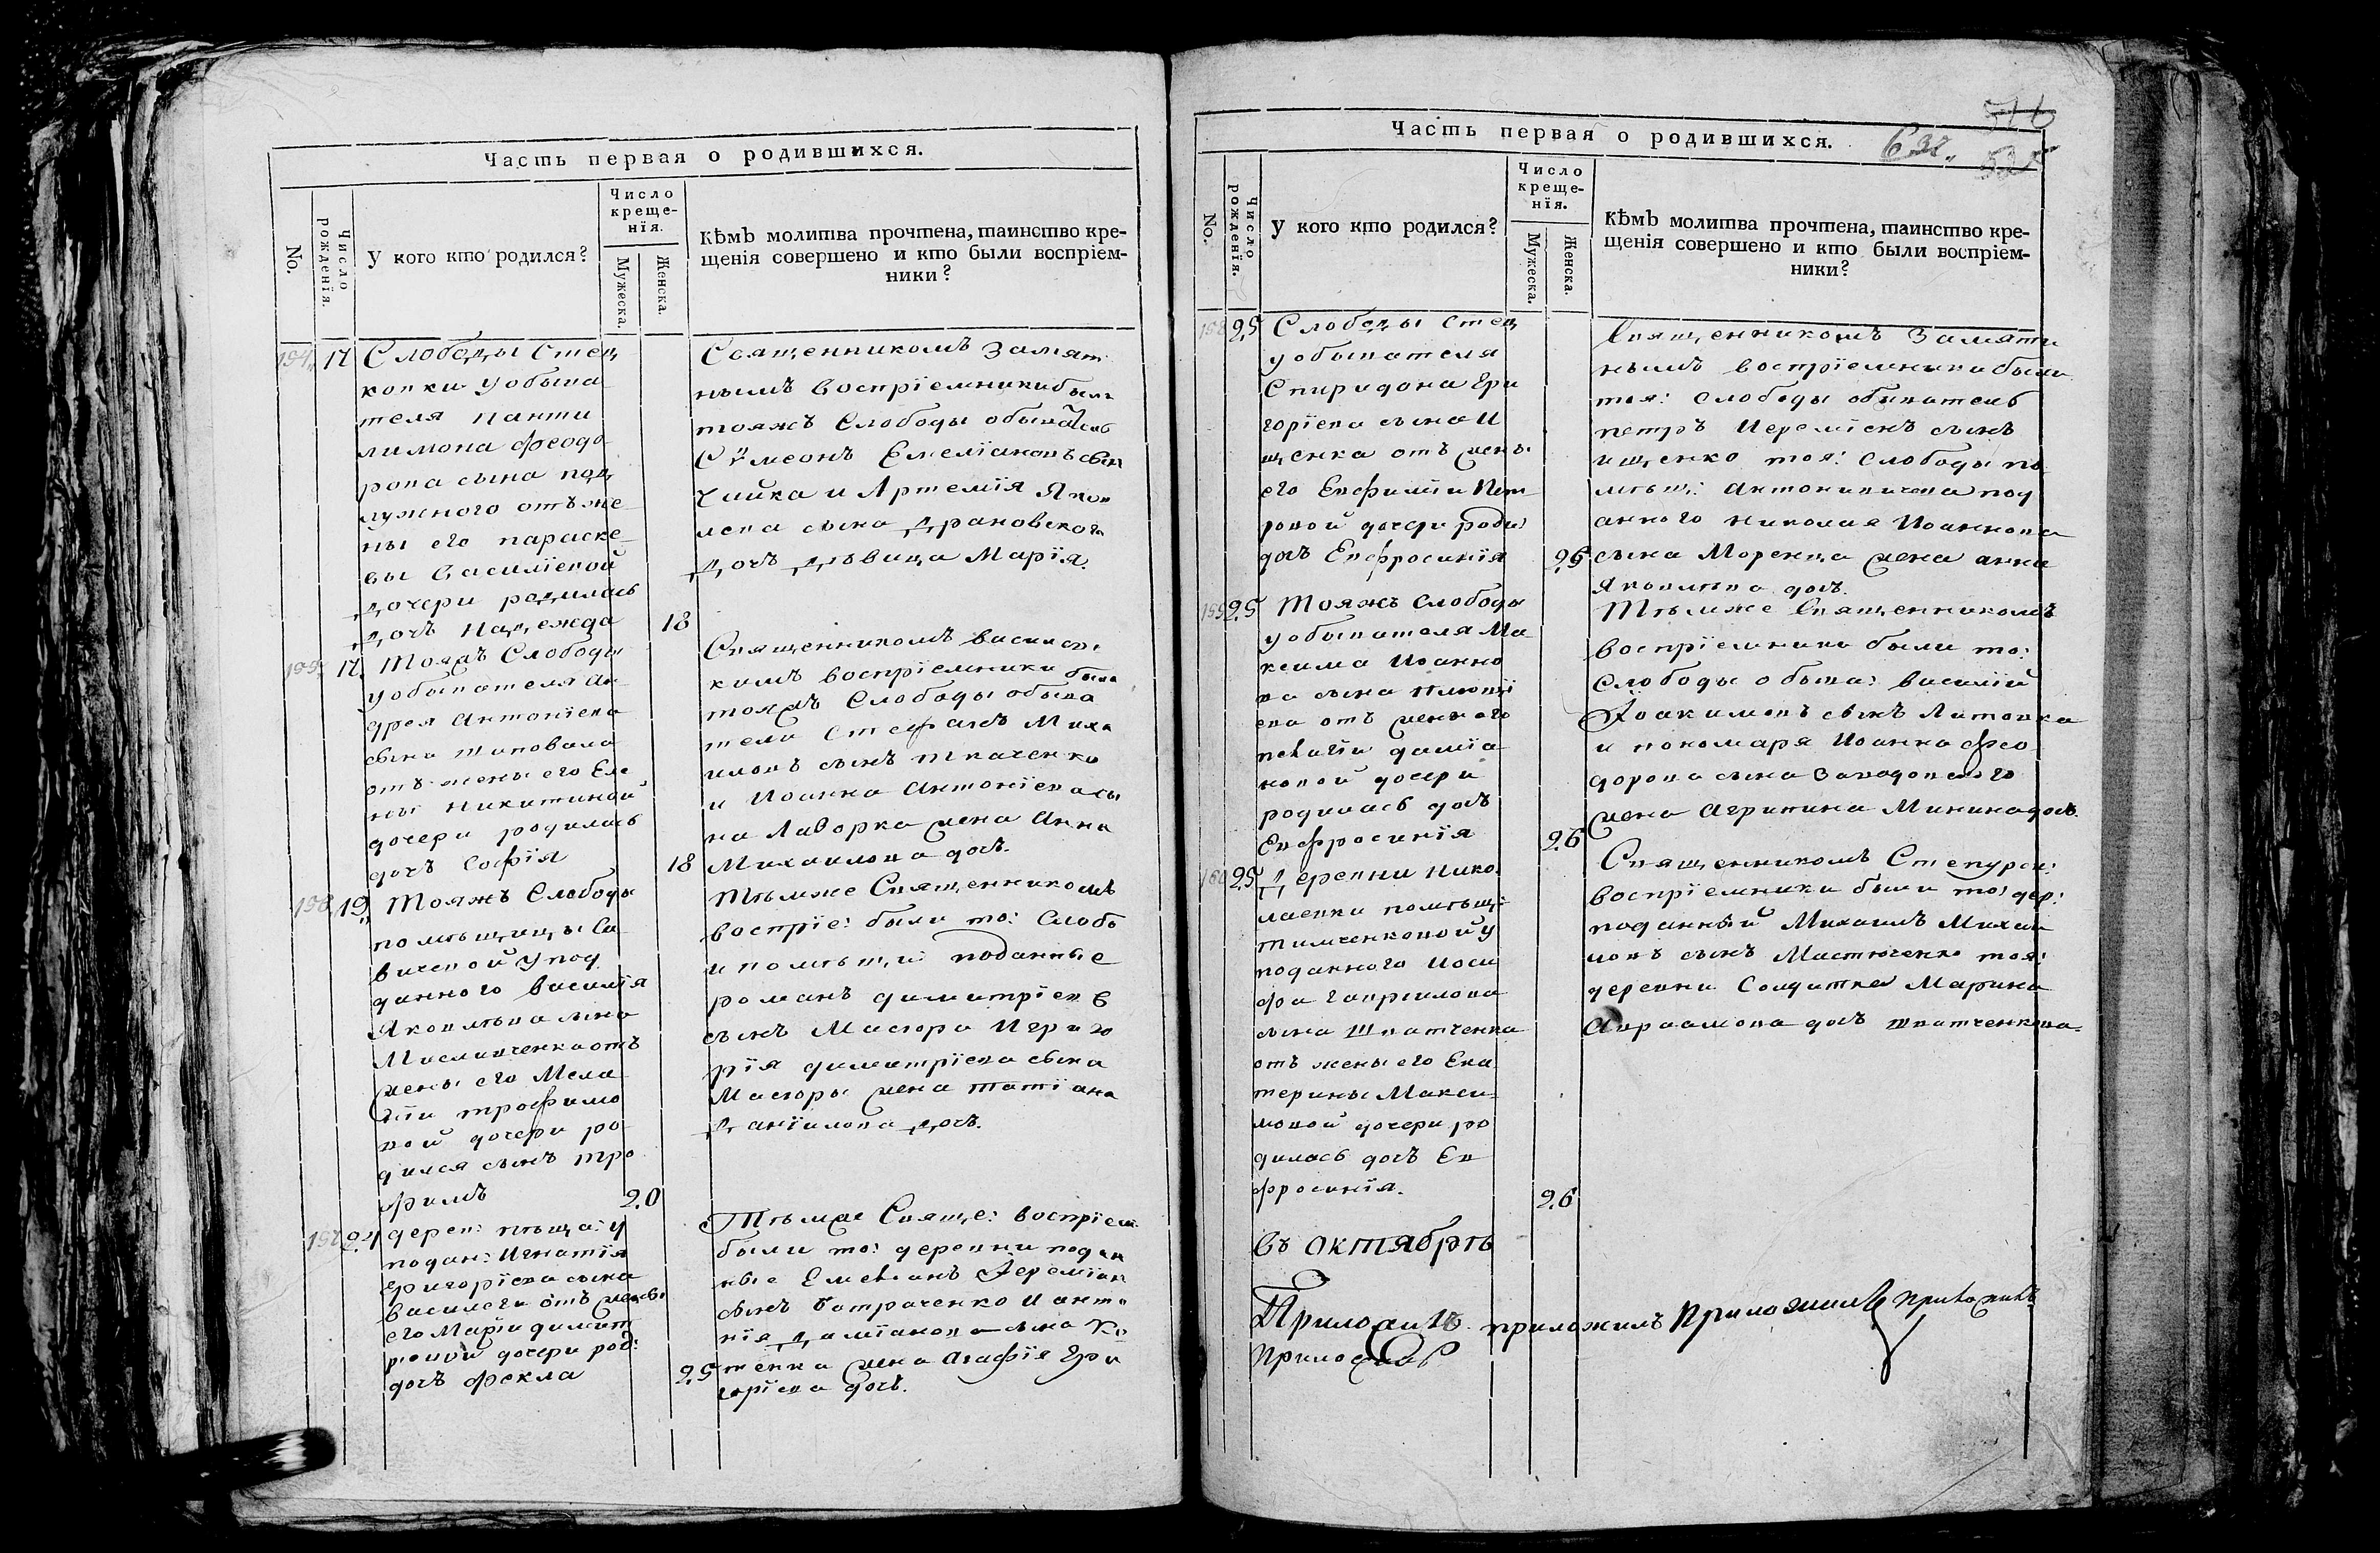 Часть первая о родившихся.
No.
Число рожденія.
У кого кто родился?
Число
креще-
нія.
Мужеска.
Женска.
Кѣмъ молитва прочтена, таинство кре-
щенія совершено и кто были воспріем-
ники?
154 17 Слободы Стец
ковки у обыва
теля Панти
лимона Феодо
рова сына Под
лужного отъ же
ны его Параске
вы Василіевой
дочери родилась
дочь Надежда 18
Священникомъ Замят
нымъ воспріемники были
тояжъ Слободы обыватель
Сѵмеонъ Емеліановъ сынъ
Чайка и Артемія Яков
лева сына Драновского
дочь дѣвица Марія.
155 17 Тояжъ Слободы
у обывателя Ан
дрея Антоніева
сына Шаповала
отъ жены его Еле
ны Никитиной
дочери родилась
дочь Софія 18
Священникомъ Василев
кимъ воспріемники были
тояжъ Слободы обыва
тели Стефанъ Миха
иловъ сынъ Ткаченко
и Иоанна Антоніева сы
на Лаворка жена Анна
Михаилова дочь.
156 19 Тояжъ Слободы
помѣщицы Са
вичевой у под
данного Василія
Яковлева сына
Маслаченка отъ
жены его Мела
ніи Трофимо
вой дочери ро
дился сынъ Тро
фимъ 20
Тѣмже Священникомъ
воспріе: были то: Слобо
и помѣщи: подданные
Романъ Димитріевъ
сынъ Масюра и Григо
рія Димитріева сына
Масюры жена Татіана
Даніилова дочь.
157 24 дерев: пѣща: у
подан: Игнатія
Григоріева сына
отъ жены
его Маріи Димит
ріевой дочери род:
дочь Фекла 25
Тѣмже Свяще: воспріем
были то: деревни поддан
ные Емеліанъ Іереміев
сынъ Батраченко и Анто
нія Даміанова сына Ко
тенка жена Агафія Гри
горіева дочь.
Часть первая о родившихся.
516
638.
525
No.
Число рожденія.
У кого кто родился?
Число
креще-
нія.
Мужеска.
Женска.
Кѣмъ молитва прочтена, таинство кре-
щенія совершено и кто были воспріем-
ники?
158 25 Слободы Стец
у обывателя
Спиридона Гри
горіева сына И
щенка отъ жены
его Евфиміи Пет
ровой дочери роди:
дочь Евфросинія 26
Священникомъ Замятн
нымъ воспріемники были
тоя: Слободы обыватель
Петръ Иереміевъ сынъ
Ищенко тоя: Слободы по
мѣщ: Антоновичева под
анного Николая Иоаннова
сына Моренца жена Анна
Яковлева дочь.
159 25 Тояжъ Слободы
у обывателя Ма
ксима Иоанно
ва сына
ева отъ жены его
Пелагіи Даміа
новой дочери
родилась дочь
Евфросинія 26
Тѣмже Священникомъ
воспріемники были то:
Слободы обыва: Василій
Іоакимовъ сынъ Литовка
и пономаря Иоанна Фео
дорова сына Заводовского
жена Агрипина Минина дочь.
160 25 Деревни Нико
лаевки помѣщи:
Тимченковой у
поданного Иоси
фа Гавриилова
сына Шпатченка
отъ жены его Ека
терины Макси
мовой дочери ро
дилась дочь Ев
фросинія. 26
Священникомъ Степурск:
воспріемники были то: дер:
поданный Михаилъ Михаи
ловъ сынъ Мастюченко тоя:
деревни Солдатка Марина
Авраамова дочь Шпатченкова.
Въ октябрѣ
Приложилъ приложилъ Приложилъ приложилъ
приложилъ